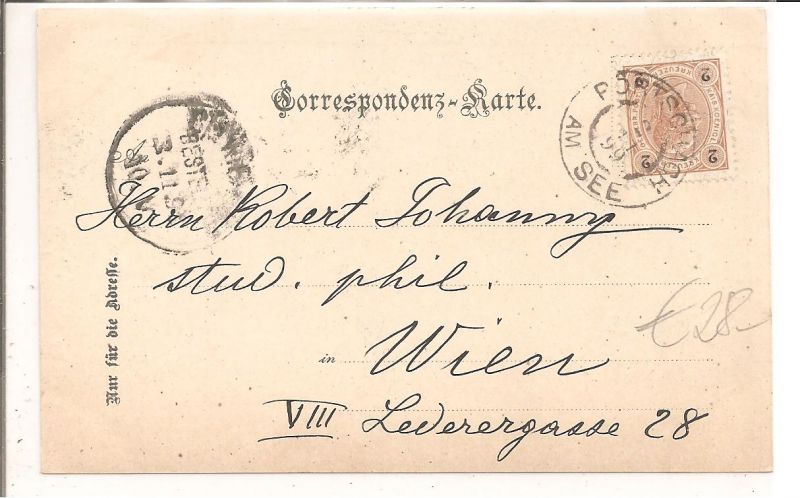 Correspondenz-Karte.
PÖRTSCHACH
AM SEE
99
2 KREUZER 2
2
BESTELLT
3.11.9
Herrn Robert Johanny
stud. phil.
in Wien
VIII Lederergasse 28
Nur für die Adresse.
€ 28-